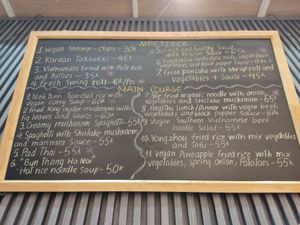 APPETIZER
1. Vegan Shrimp - chips - 30k
2. Korean TOKBOKKI - 45k
3. Vietnamese bread with Pate nut
and Patties - 35k
4. Fresh Spring roll - 40k
5. Fresh and healthy Salad
vegetables and black pepper sauce
7. Fried pancake with wrap roll and
Vegetables + Sauce - 45k
MAIN COURSE
1. Ninh Binh Scorched rice with
vegan curry Soup
2. Fried King oyster mushroom with
fig leaves and Sauce - 60k
3. Creamy mushroom Spaghetti - 55k
4. Spaghetti with Shiitake mushroom
and marinara Sauce - 55k
5. Pad Thai - 55k
6. Bun Thang Ha Noi
- Hot rice noodle soup - 50k
7. Stir fried organic noodle with onion,
vegetables and Shiitake mushroom - 65k
8. Healthy lunch/dinner with vegan beef
vegetables and black pepper Sauce
9. Vegan Southern Vietnamese beef
noodle Salad - 55k
10. Yang zhou fried rice with mix vegetables
and Tofu - 55k
11. Vegan Pineapple fried rice with mix
vegetables, spring onion, Potatoes - 55k